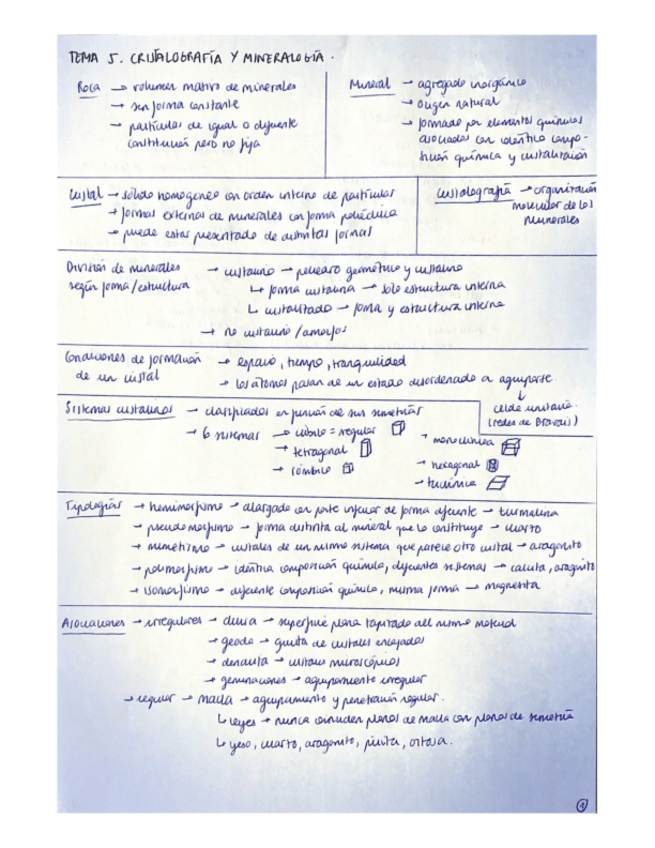 TEMA 5. CRISTALOGRAFÍA Y MINERALOGÍA.
Roca → volumen masivo de minerales
→ sin forma constante
→ partículas de igual o diferente
constitución pero no fija
Mineral → agregado inorgánico
→ origen natural
→ formado por elementos químicos
asociados con idéntica compo-
sición química y cristalización
Cristal → sólido homogeneo con orden interno de partículas
→ formas externas de minerales con forma poliédrica
→ puede estar presentado de distintas formas
Cristalografía → organización
molecular de los
minerales
División de minerales
según forma/estructura
→ cristalino → poliedro geométrico y cristalino
↳ forma cristalina → solo estructura interna
↳ cristalizado → forma y estructura interna
→ no cristalino/amorfos
Condiciones de formación
de un cristal
→ espacio, tiempo, tranquilidad
→ los átomos pasan de un estado desordenado a agruparse.
↓
celda unitaria.
(redes de Bravais)
Sistemas cristalinos → clasificados en función de sus simetrías
→ 6 sistemas → cúbico = regular
→ tetragonal
→ rómbico
→ monoclínica
→ hexagonal
→ triclínica
Tipologías → hemimorfismo → alargado con parte inferior de forma diferente → turmalina
→ pseudomorfismo → forma distinta al mineral que lo constituye → cuarzo
→ mimetismo → cristales de un mismo sistema que parece otro cristal → aragonito
→ polimorfismo → idéntica composición química, diferentes sistemas → calcita, aragonito
→ isomorfismo → diferente composición química, misma forma → magnesita
Asociaciones → irregulares → drusa → superficie plana tapizada del mismo material
→ geoda → gruta de cristales encajados
→ dendrita → cristales microscópicos
→ geminaciones → agrupamiento irregular
→ regular → macla → agrupamiento y penetración regular.
↳ leyes → nunca coinciden planos de macla con planos de simetría
↳ yeso, cuarzo, aragonito, pirita, ortosa.
1